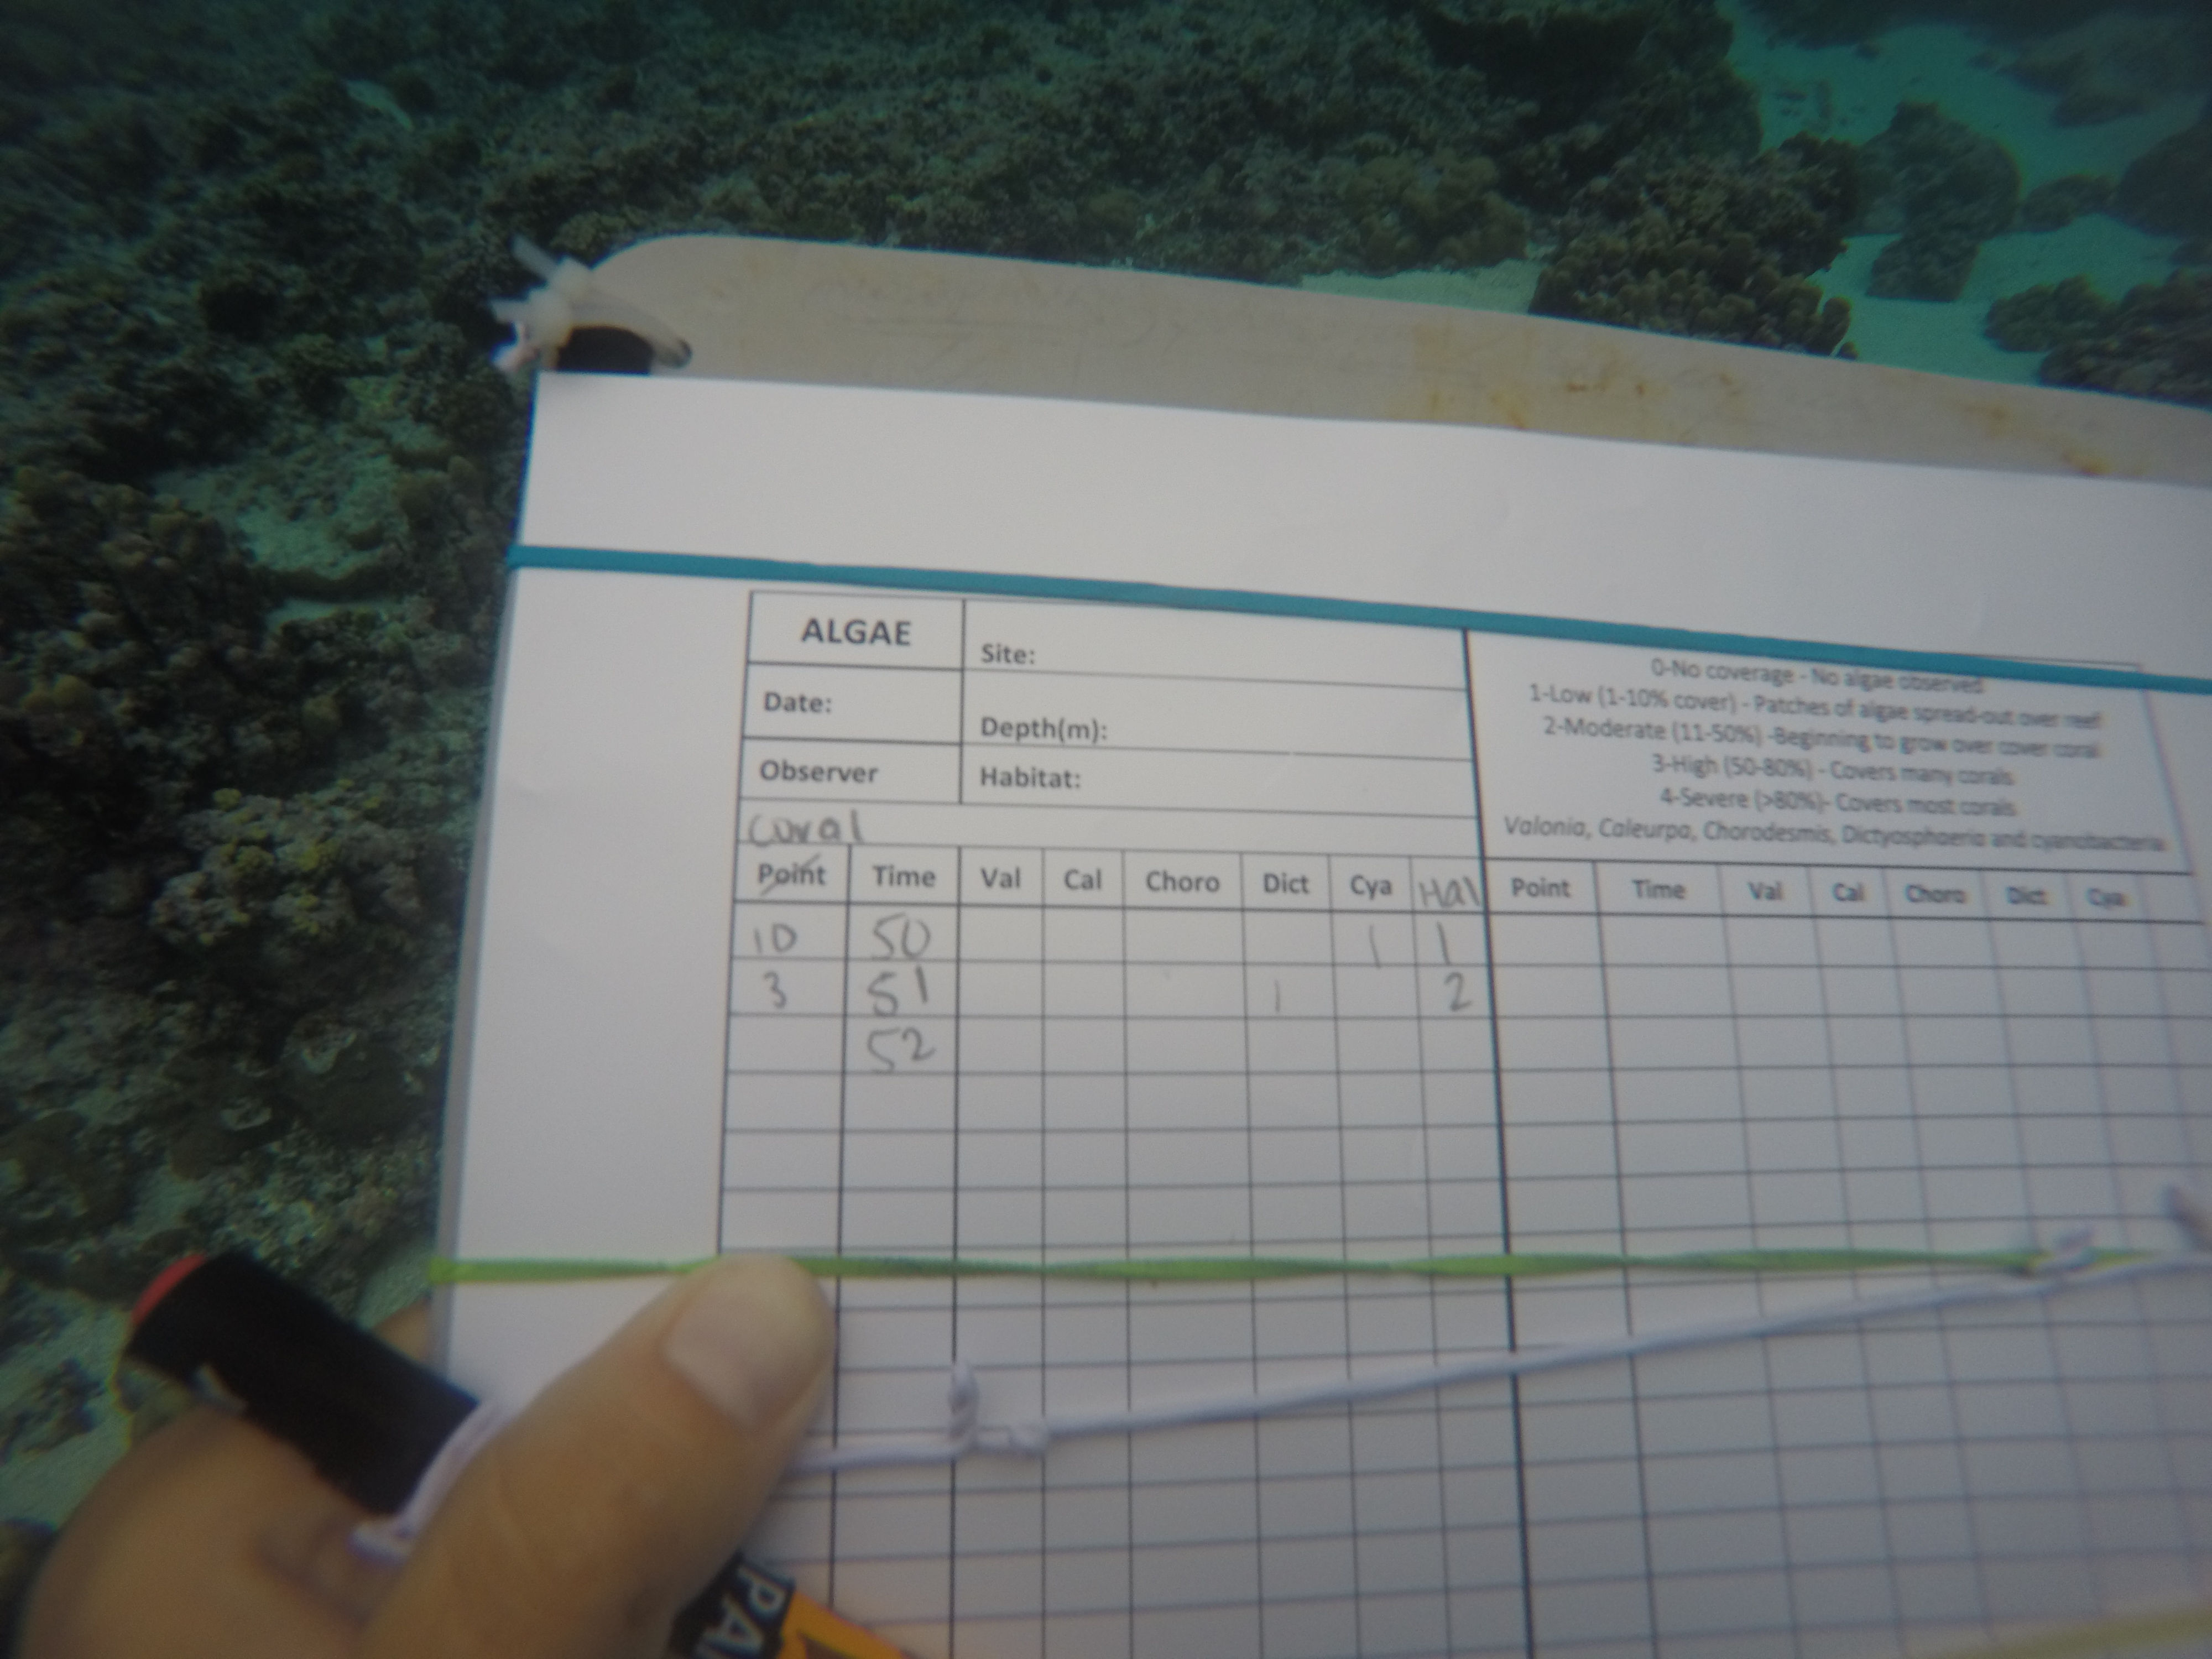 ALGAE
Site:
Date:
Depth(m):
Observer
Habitat:
0-No coverage - No algae observed
1-Low (1-10% cover) - Patches of algae spread-out over reef
2-Moderate (11-50%) -Beginning to grow over cover coral
3-High (50-80%) - Covers many corals
4-Severe (>80%)- Covers most corals
Valonia, Caleurpa, Chorodesmis, Dictyosphaeria and cyanobacteria
Coral
Point Time Val Cal Choro Dict Cya Hal Point Time Val Cal Choro Dict Cya
10 50 1 1
3 51 1 2
52